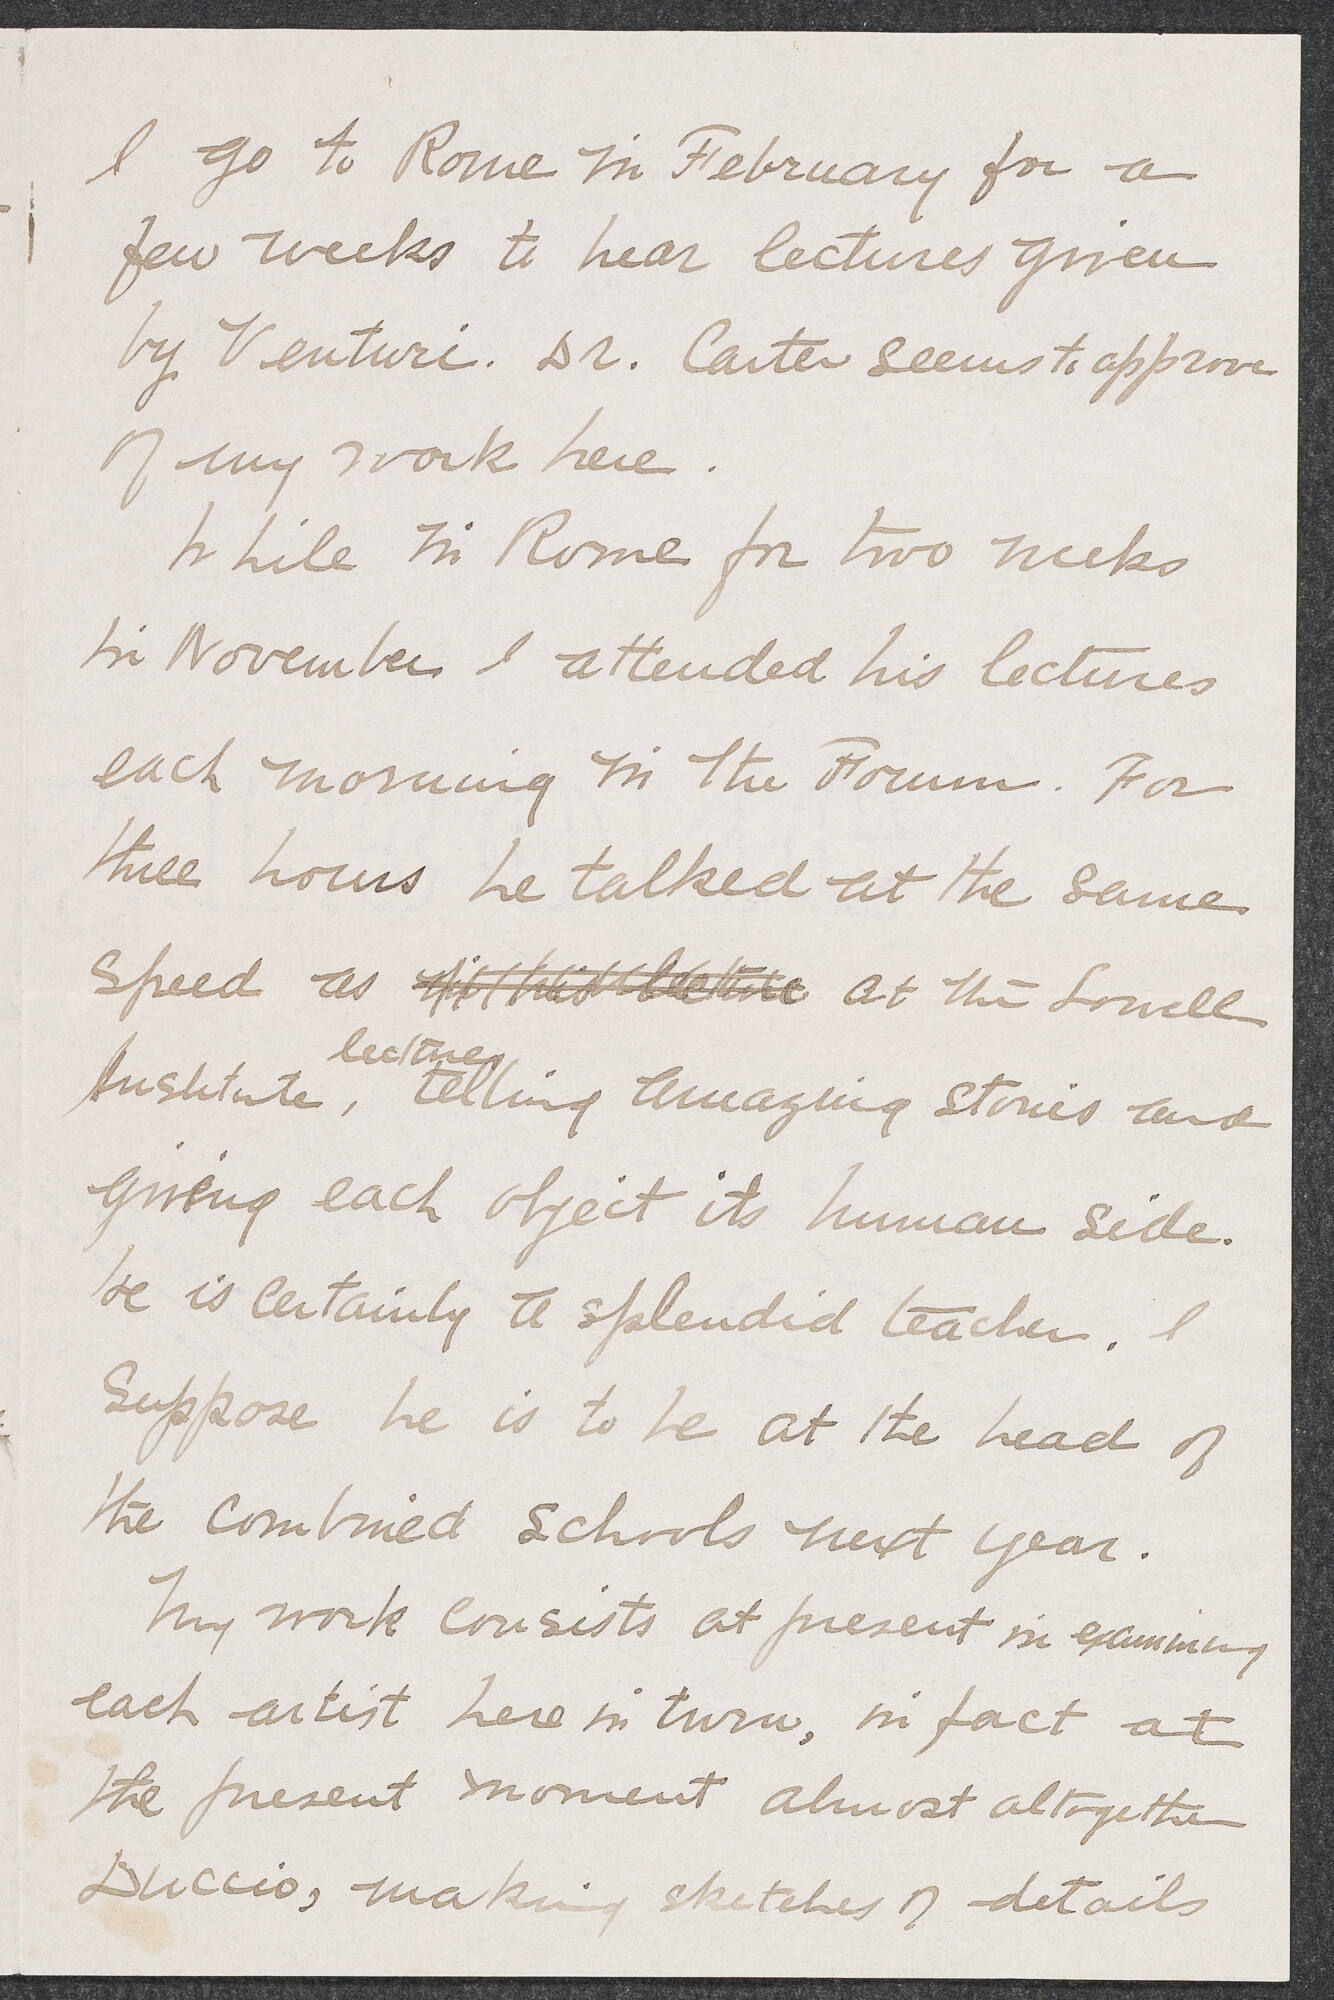 I go to Rome in February for a
few weeks to hear lectures given
by Venturi. Dr. Carter seems to approve
of my work here.
While in Rome for two weeks
in November I attended his lectures
each morning in the Forum. For
three hours he talked at the same
speed as at the Lowell
lectures
Institute, telling amazing stories and
giving each object its human side.
He is certainly a splendid teacher. I
suppose he is to be at the head of
the combined schools next year.
My work consists at present in examining
each artist here in turn, in fact at
the present moment almost altogether
Duccio, making sketches of details